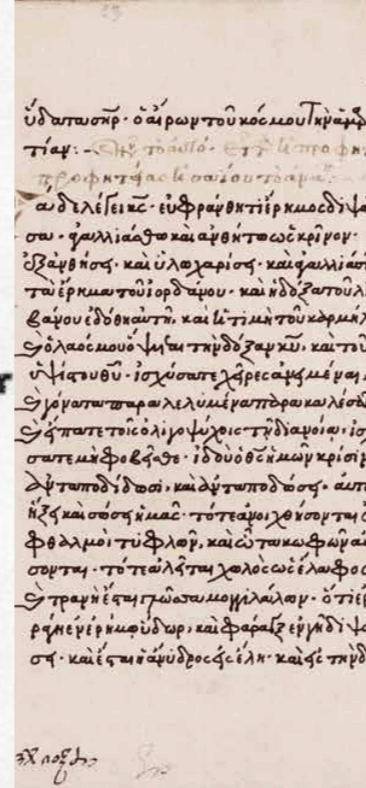 σηρ· ὁ αἴρων τοῦ κόσμου τὴν
τίαν:-
προφητείας ἡσαΐου τὸ
τάδε λέγει κς· εὐφράνθητι ἔρημος διψῶ
σα· ἀγαλλιάσθω καὶ ἀνθήτω ὡς κρίνον·
ἐξανθήσει· καὶ ὑλοχαρήσει· καὶ ἀγαλλιάσε
τὰ ἔρημα τοῦ ἰορδάνου· καὶ ἡ δόξα τοῦ λ
βάνου ἐδόθη αὐτῇ, καὶ ἡ τιμὴ τοῦ καρμήλ
καὶ ὁ λαός μου ὄψεται τὴν δόξαν κυ, καὶ τὸ
ὕψος τοῦ θυ· ἰσχύσατε χεῖρες ἀνειμέναι,
καὶ γόνατα παραλελυμένα παρακαλέσα
καὶ εἴπατε τοῖς ὀλιγοψύχοις τῇ διανοίᾳ, ἰσ
σατε μὴ φοβεῖσθε· ἰδοὺ ὁ θς ἡμῶν κρίσιν
ἀνταποδίδωσι, καὶ ἀνταποδώσει· αὐτ
ἥξει καὶ σώσει ἡμᾶς· τότε ἀνοιχθήσονται ὀ
φθαλμοὶ τυφλῶν, καὶ ὦτα κωφῶν ἀ
σονται· τότε ἁλεῖται χωλὸς ὡς ἔλαφος
καὶ τρανὴ ἔσται γλῶσσα μογγιλάλων· ὅτι ἐ
ράγη ἐν ἐρήμῳ ὕδωρ, καὶ φάραγξ ἐν γῇ διψώ
σῃ· καὶ ἔσται ἡ ἄνυδρος εἰς ἕλη· καὶ εἰς τὴν δ